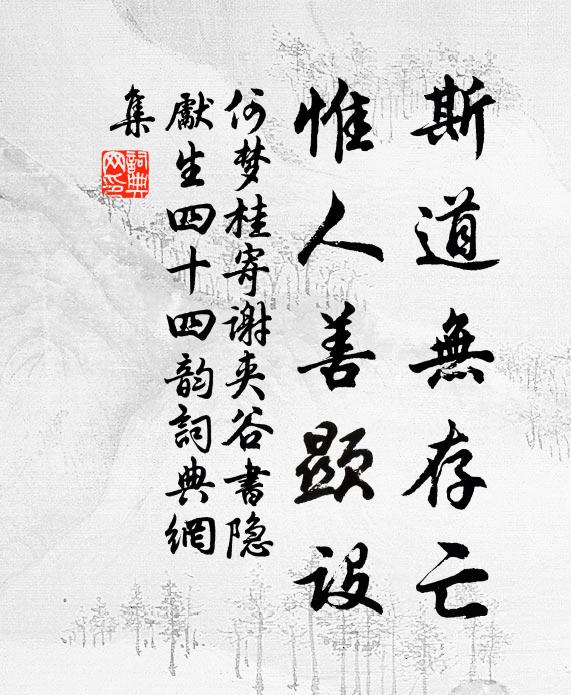 斯道無存亡
惟人善顯設
何梦桂寄谢夹谷書隐
獻生四十四韵詞典網
集
詞典網印